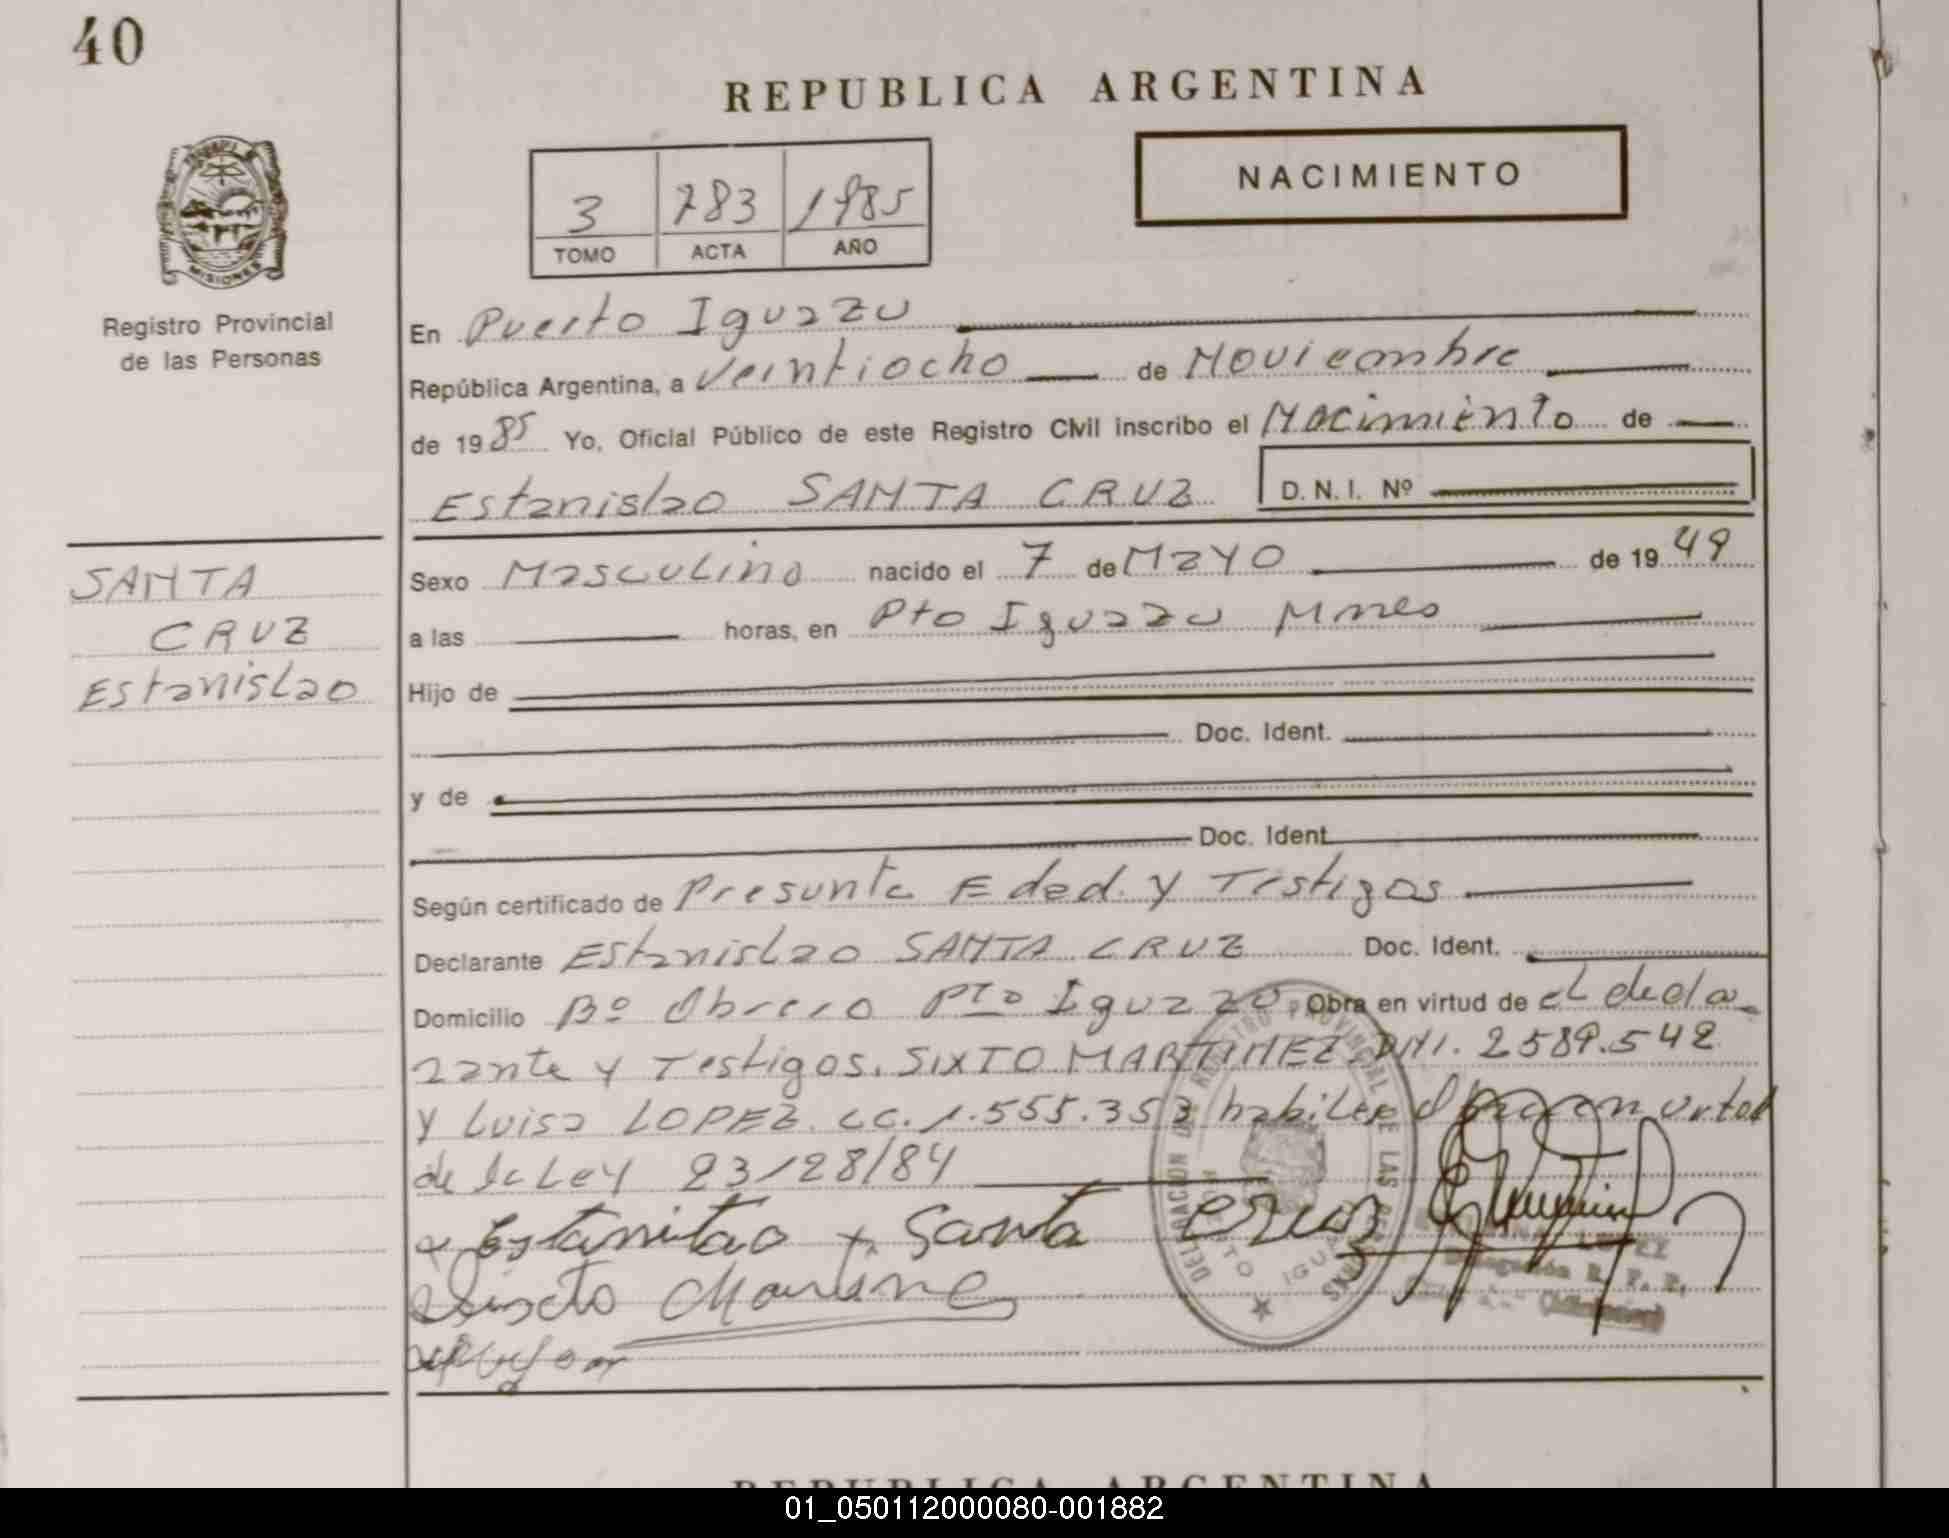 40
REPUBLICA ARGENTINA
NACIMIENTO
3 783 1985
TOMO ACTA AÑO
MISIONES
Registro Provincial
de las Personas
En Puerto Iguazu
República Argentina, a Veintiocho de Noviembre
de 1985 Yo, Oficial Público de este Registro Civil inscribo el Nacimiento de
Estanislao SANTA CRUZ D.N.I. Nº
SANTA
CRUZ
Estanislao
Sexo Masculino nacido el 7 de Mayo de 1949
a las horas, en Pto Iguazu Mnes
Hijo de
Doc. Ident.
y de
Doc. Ident.
Según certificado de Presunta Edad y Testigos
Declarante Estanislao SANTA CRUZ Doc. Ident.
Domicilio Bº Obrero Pto Iguazu Obra en virtud de el decla
rante y Testigos. SIXTO MARTINEZ DNI. 2589.542
y Luisa LOPEZ. CC. 1.555.353 habiles
de la Ley 23128/84
Estanilao Santa Cruz
REGISTRO PROVINCIAL DE LAS PERSONAS
DELEGACION
PUERTO IGUAZU
LOPEZ
Delegación R. P. P.
(Misiones)
REPUBLICA ARGENTINA
01_050112000080-001882